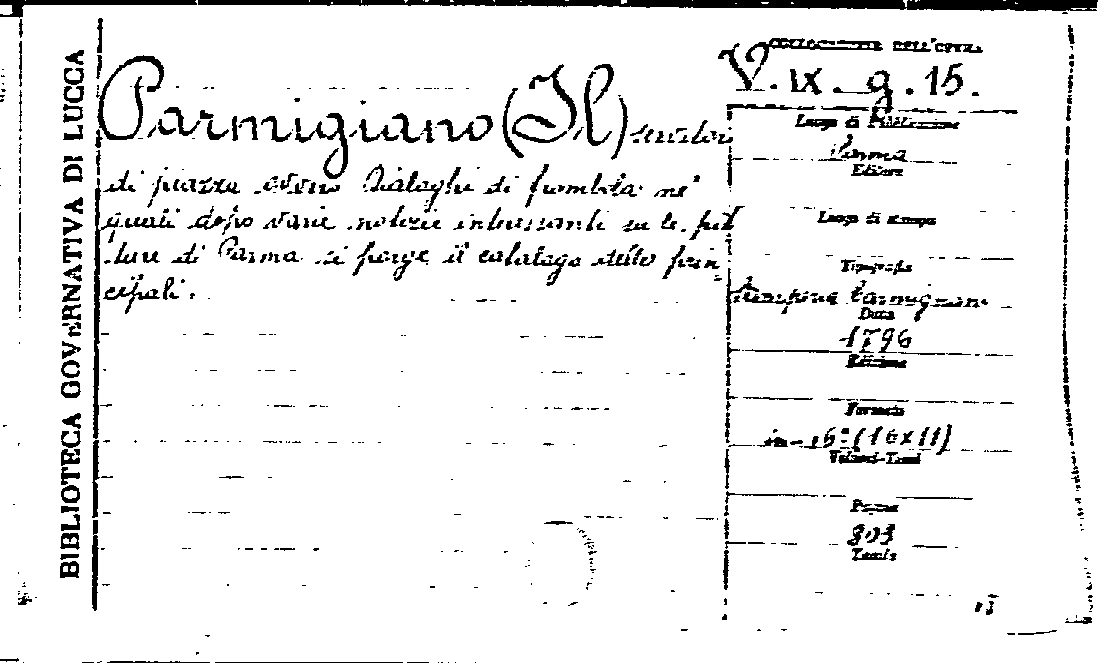 BIBLIOTECA GOVERNATIVA DI LUCCA
Parmigiano (Il) servitor
di piazza ovvero Dialoghi di frombola ne'
quali dopo varie notizie interessanti su le pit
ture di Parma si porge il catalogo delle prin
cipali.
COLLOCAZIONE DELL'OPERA
V. IX. g. 15.
Luogo di Pubblicazione
Parma
Editore
Luogo di stampa
Tipografia
Stamperia Carmignani
Data
1796
Edizione
Formato
in-16° (16x11)
Volumi-Tomi
Pagine
Tavole